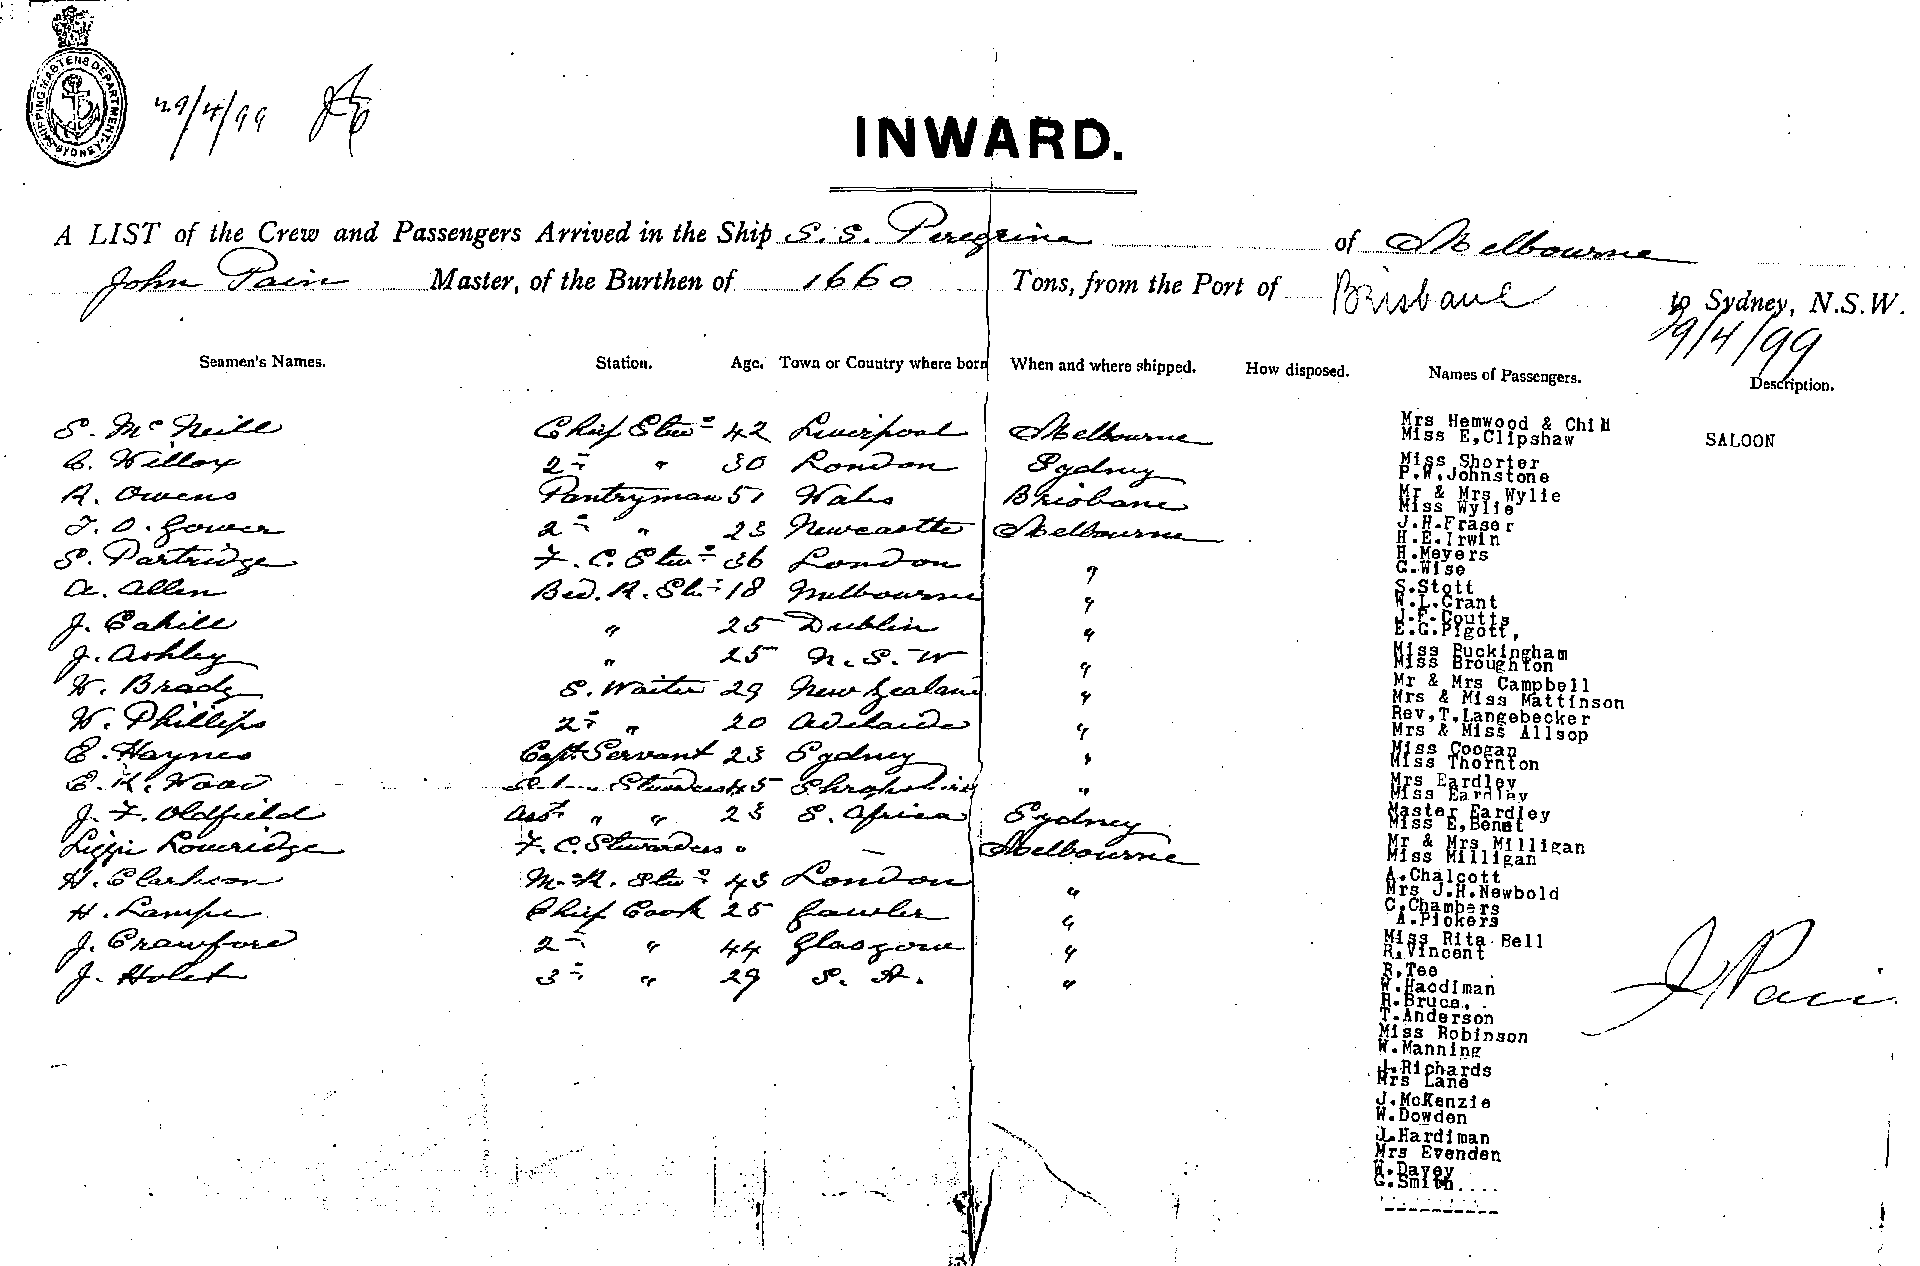 SHIPPING MASTERS DEPARTMENT SYDNEY
29/4/99
INWARD.
A LIST of the Crew and Passengers Arrived in the Ship S.S. Peregrine of Melbourne
John Pain Master, of the Burthen of 1660 Tons, from the Port of Brisbane to Sydney, N.S.W.
29/4/99
Seamen's Names. Station. Age. Town or Country where born When and where shipped. How disposed. Names of Passengers. Description.
S. McNeill Chief Stewd 42 Liverpool Melbourne
C. Willox 2nd " 30 London Sydney
R. Owens Pantryman 51 Wales Brisbane
T. O. Gower 2nd " 23 Newcastle Melbourne
S. Partridge F. C. Stewd 36 London "
A. Allen Bed. R. Std 18 Melbourne "
J. Cahill " 25 Dublin "
J. Ashley " 25 N.S.W "
W. Brady S. Waiter 29 New Zealand "
W. Phillips 2nd " 20 Adelaide "
E. Haynes Capt. Servant 23 Sydney "
E. K. Wood Stewardess 45 Shropshire "
J. F. Oldfield Asst " " 23 S. Africa Sydney
Lizzie Loweridge F. C. Stewardess " — Melbourne
H. Clarkson M. R. Stewd 43 London "
H. Lampe Chief Cook 25 Gawler "
J. Crawford 2nd " 44 Glasgow "
J. Holst 3rd " 29 S. A. "
Mrs Hemwood & Child
Miss E,Clipshaw
SALOON
Miss Shorter
P.W.Johnstone
Mr & Mrs Wylie
Miss Wylie
J.H.Fraser
H.E.Irwin
H.Meyers
G.Wise
S.Stott
W.L.Grant
J.F.Coutts
E.G.Pigott,
Miss Buckingham
Miss Broughton
Mr & Mrs Campbell
Mrs & Miss Mattinson
Rev,T.Langebecker
Mrs & Miss Allsop
Miss Coogan
Miss Thornton
Mrs Eardley
Miss Eardley
Master Eardley
Miss E,Benet
Mr & Mrs Milligan
Miss Milligan
A.Chalcott
Mrs J.H.Newbold
C.Chambers
A.Pickers
Miss Rita Bell
R.Vincent
R,Tee
W.Haddiman
H.Bruce.
T.Anderson
Miss Robinson
W.Manning
J.Richards
Mrs Lane
J.McKenzie
W.Dowden
J.Hardiman
Mrs Evenden
W.Davey
G.Smith....
J Pain